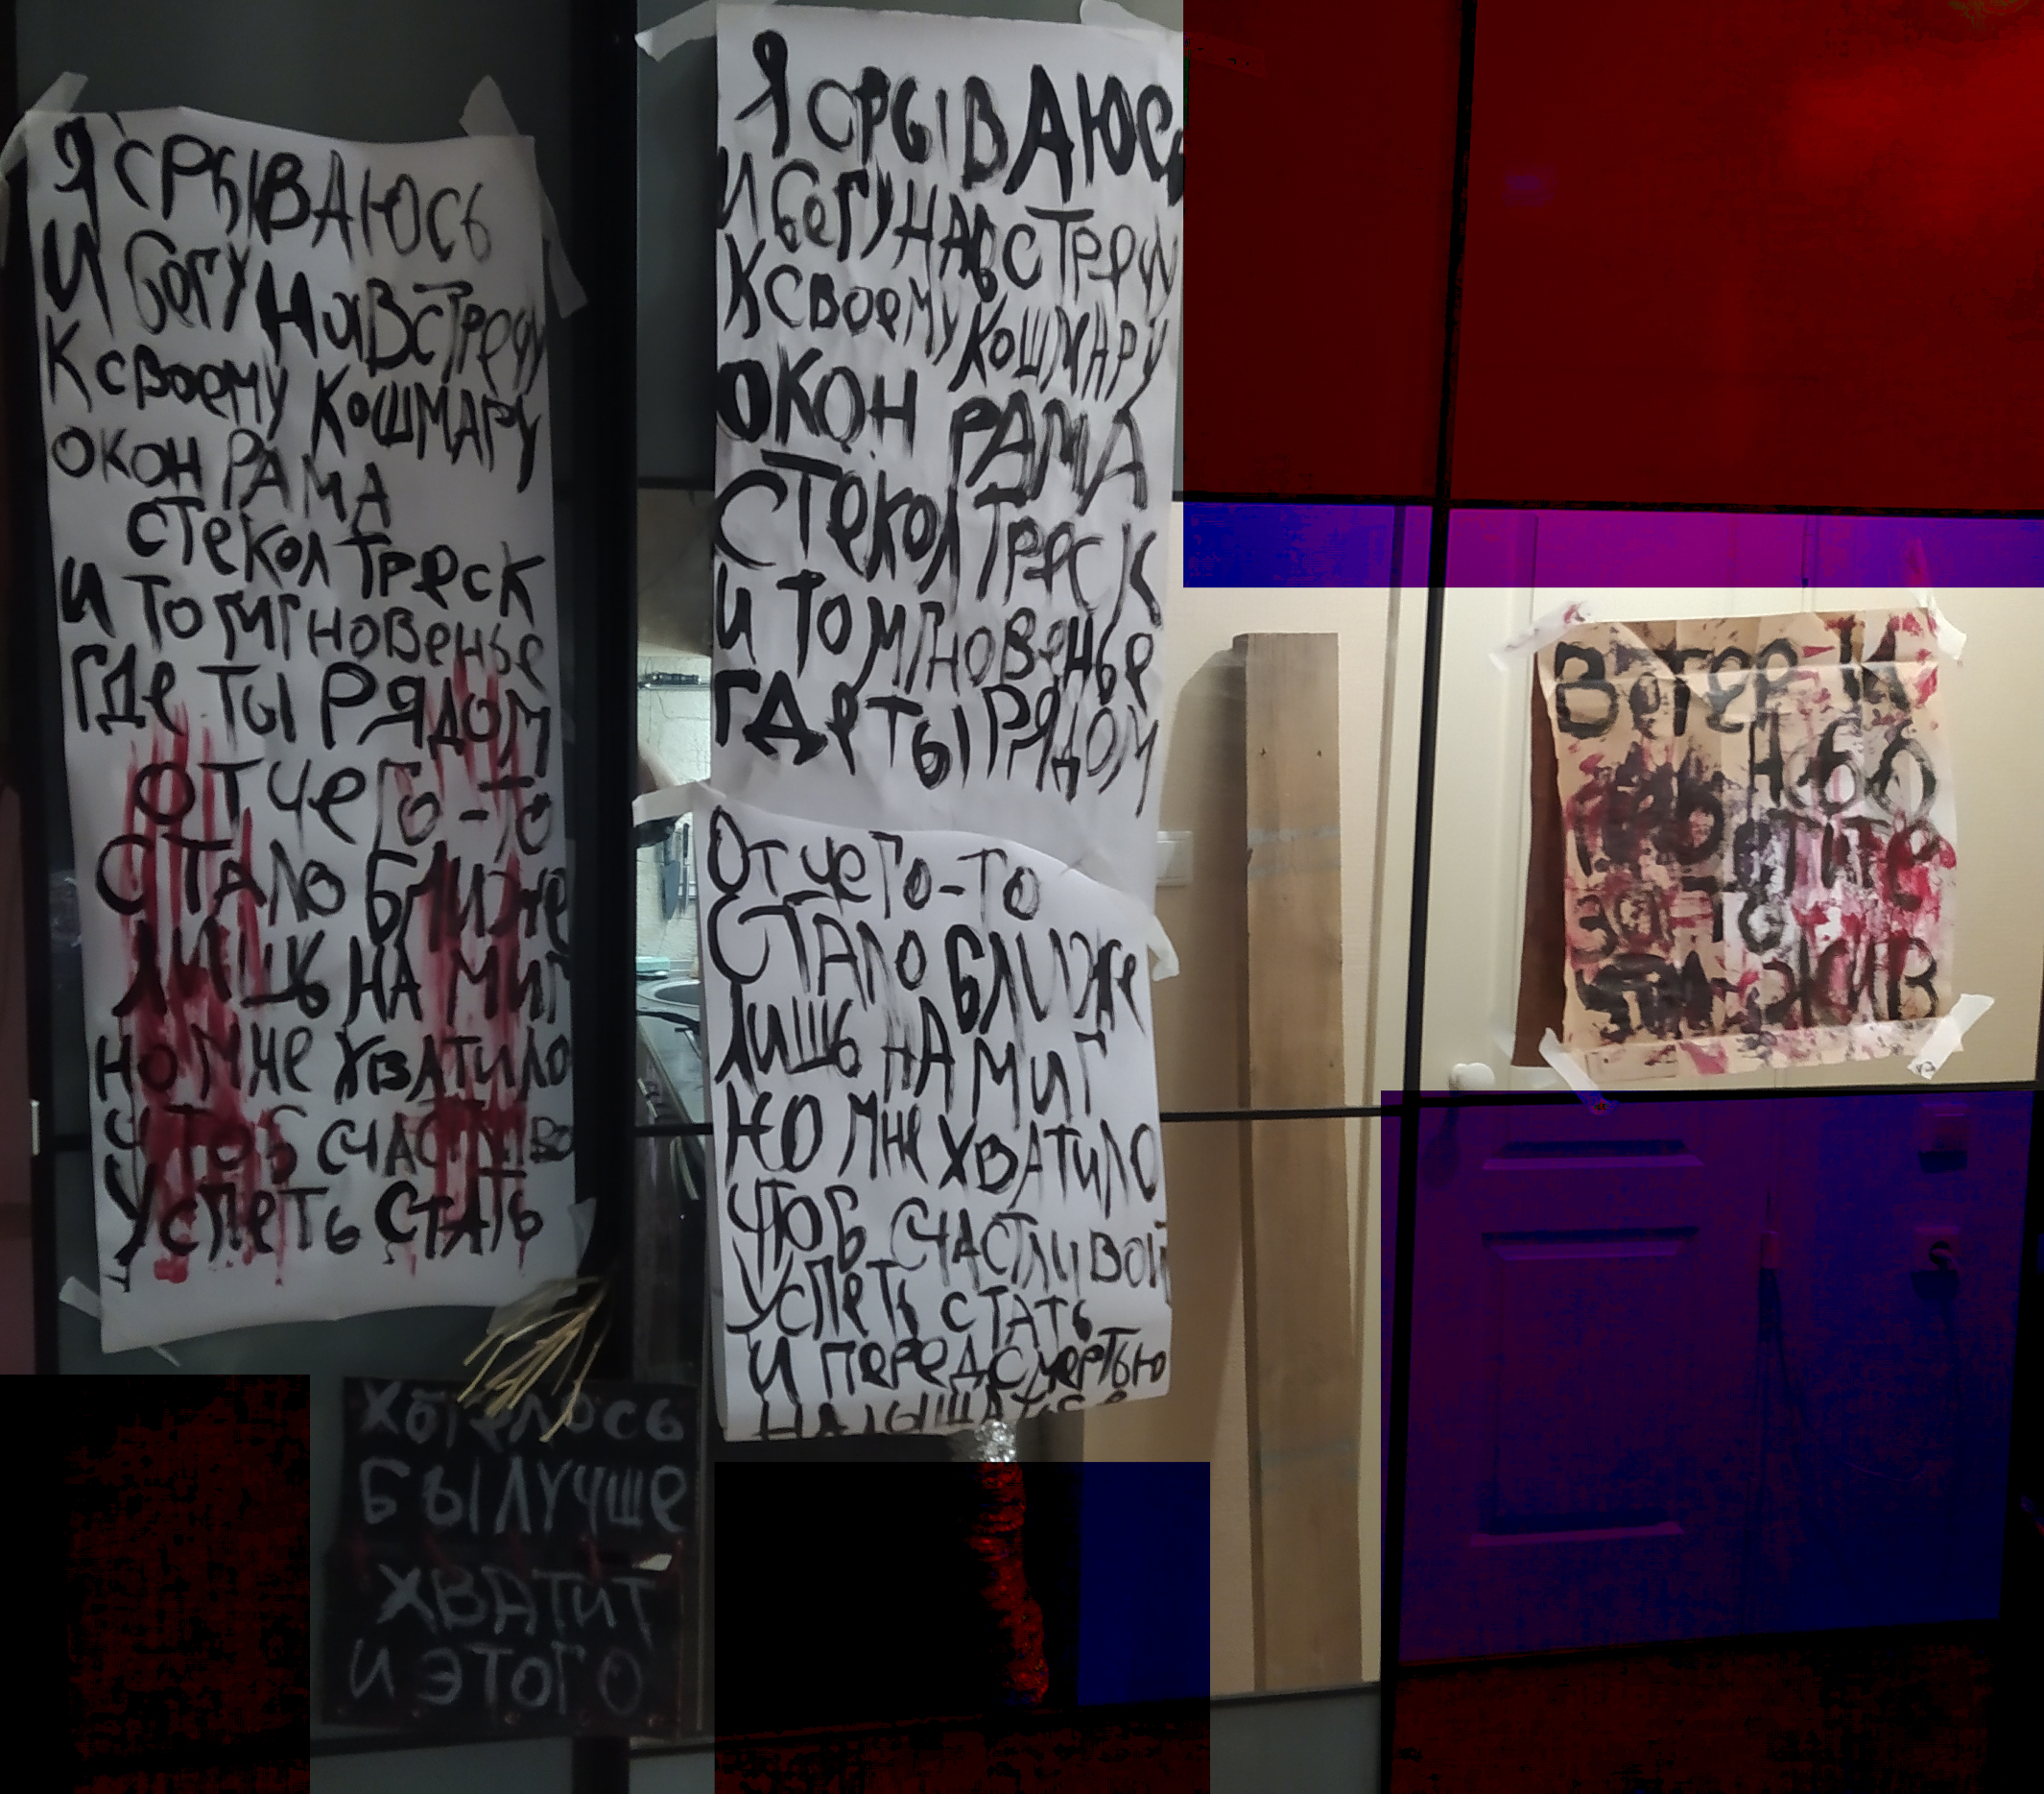 Я СРЫВАЮСЬ
И бегу НавСТречу
К своему КОШМАРУ
ОКОН РАМА
СТеКОЛ Треск
И ТО МГНОВенье
ГДе ТЫ РЯДОМ
ОТЧеГО-ТО
СТАЛО БЛИЖе
ЛИШЬ НА МИГ
НО МНе ХВАТИЛО
ЧТОБ СЧАСТЛИВО
УСПеТЬ СТАТЬ
Я СРЫВАЮСЬ
И беГУ НАВСТРечу
К СВОеМУ КОШМАРУ
ОКОН РАМА
СТеКОЛ ТРеСК
И ТО МГНОВеНЬе
ГДе ТЫ РЯДОМ
ОТчеГО-ТО
СТАЛО БЛИЖе
ЛИШЬ НА МИГ
НО МНе ХВАТИЛО
ЧТОБ СЧАСТЛИВОЙ
УСПеТЬ СТАТЬ
И ПеРеД СМеРТЬЮ
ХОТеЛОСЬ
БЫ ЛУЧШе
ХВАТИТ
И ЭТОГО
ВеТеР-К
Небо
ЗАТО
ЖИВ